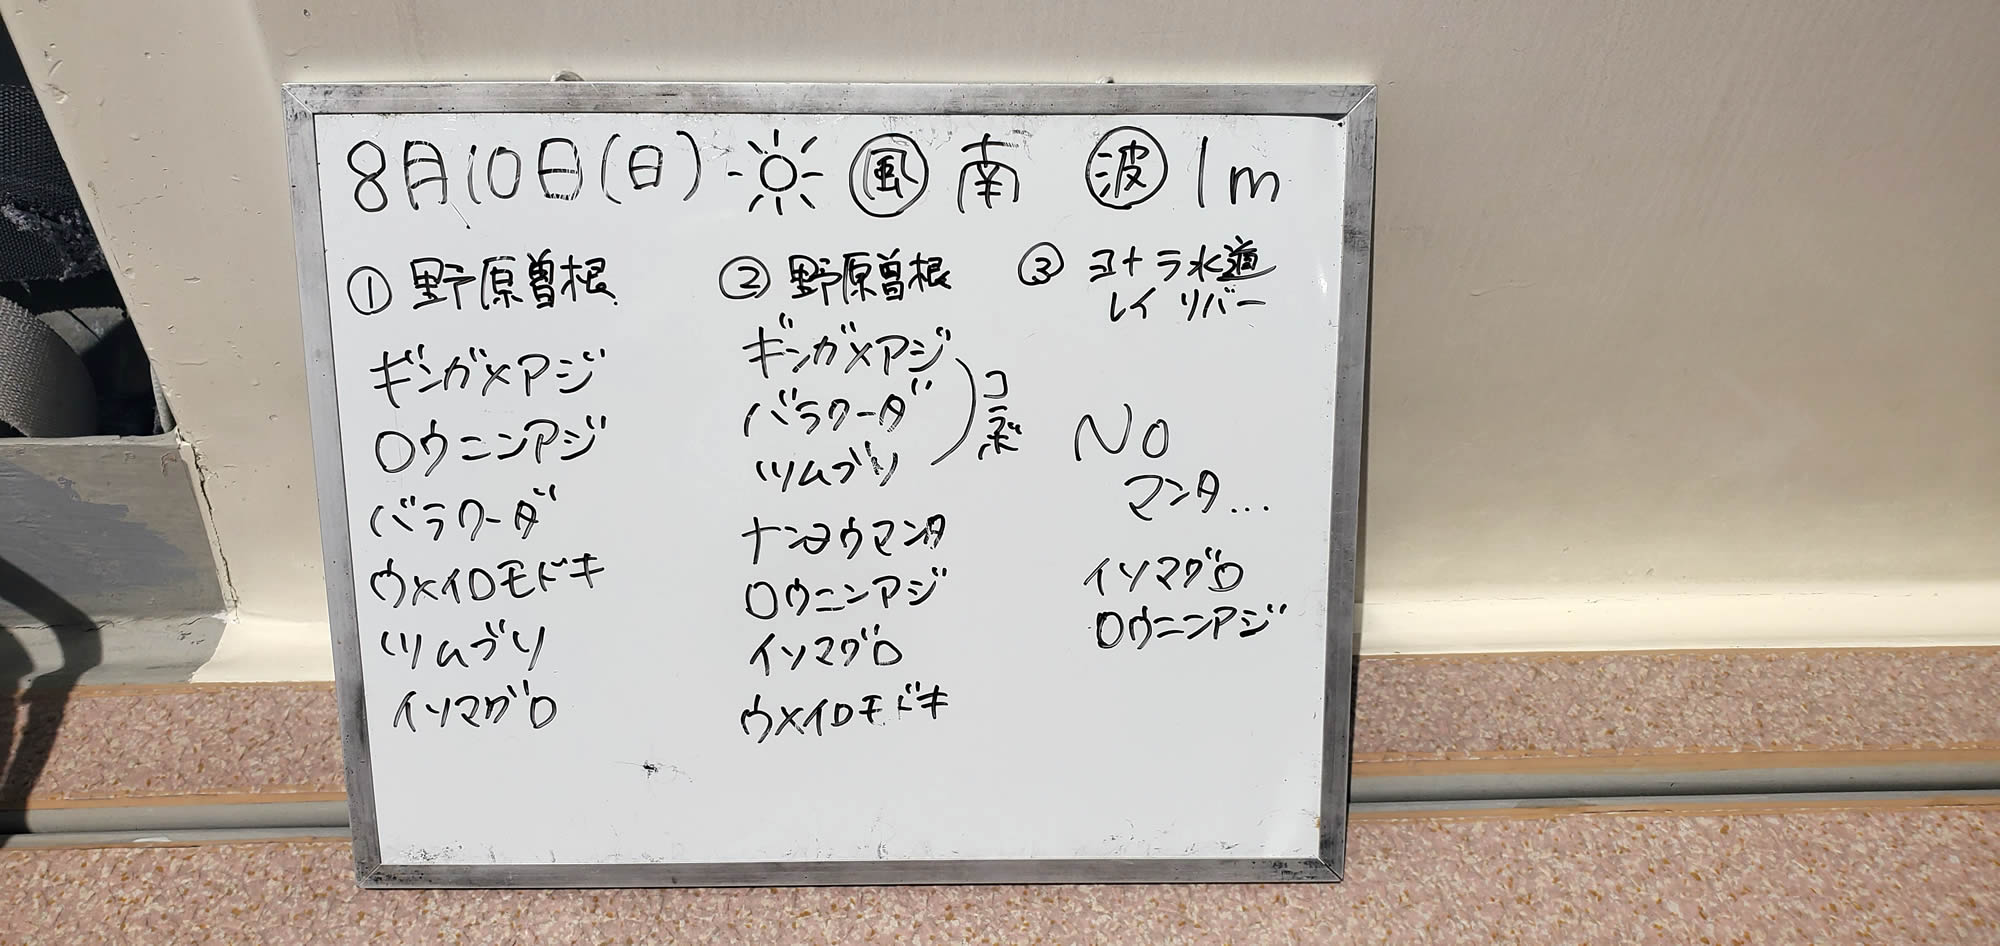 8月10日(日) ☀ 風 南 波 1m
① 野原曽根
ギンガメアジ
ロウニンアジ
バラクーダ
ウメイロモドキ
ツムブリ
イソマグロ
② 野原曽根
ギンガメアジ
バラクーダ
ツムブリ
コラボ
ナンヨウマンタ
ロウニンアジ
イソマグロ
ウメイロモドキ
③ ヨナラ水道
レイ リバー
No
マンタ...
イソマグロ
ロウニンアジ